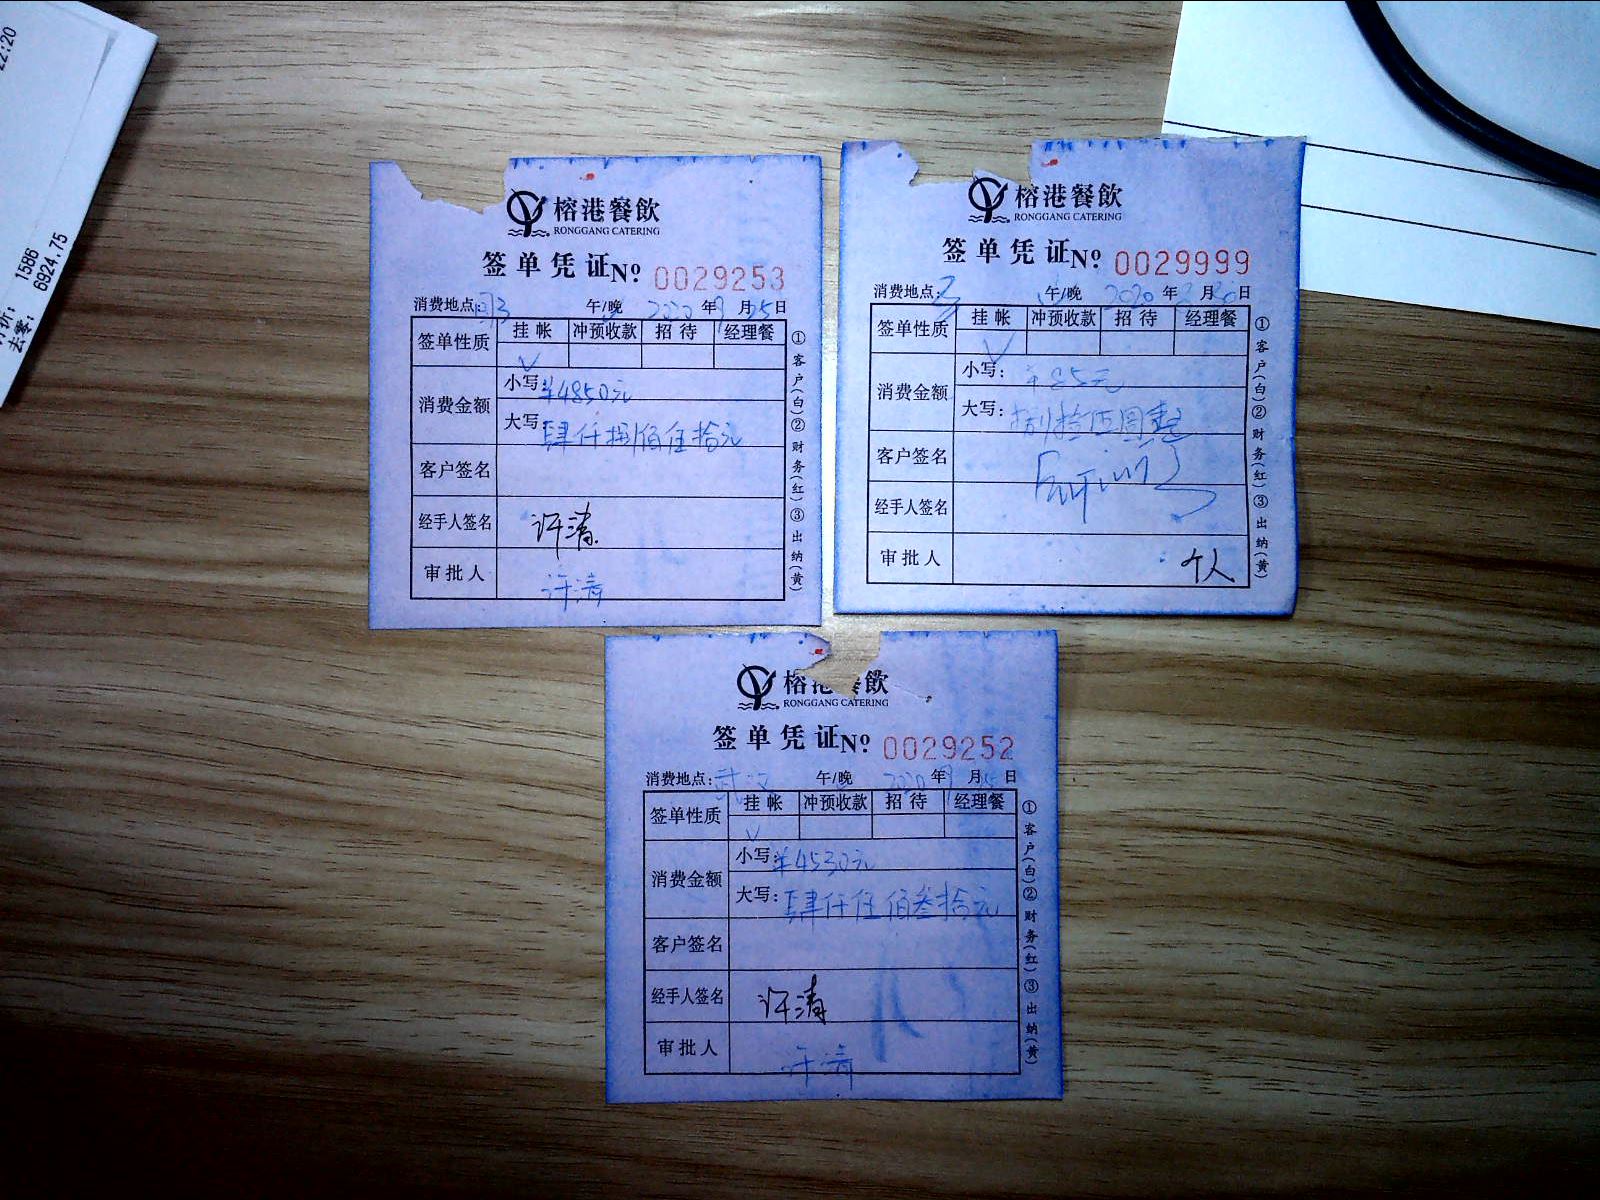 22:20
1586
去零: 6924.75
榕港餐飲
RONGGANG CATERING
签单凭证 Nº 0029253
消费地点: 午/晚 2020年9月25日
签单性质 挂帐 冲预收款 招待 经理餐
√
消费金额 小写: ¥4850元
大写: 肆仟捌佰伍拾元
客户签名
经手人签名 许清
审批人 许清
①客户(白)②财务(红)③出纳(黄)
榕港餐飲
RONGGANG CATERING
签单凭证 Nº 0029999
消费地点: 午/晚 2020年 月 日
签单性质 挂帐 冲预收款 招待 经理餐
√
消费金额 小写: ¥85元
大写: 捌拾伍圆整
客户签名
经手人签名
审批人 个人
①客户(白)②财务(红)③出纳(黄)
榕 餐飲
RONGGANG CATERING
签单凭证 Nº 0029252
消费地点: 武汉 午/晚 2020年9月 日
签单性质 挂帐 冲预收款 招待 经理餐
√
消费金额 小写: ¥4530元
大写: 肆仟伍佰叁拾元
客户签名
经手人签名 许清
审批人 许清
①客户(白)②财务(红)③出纳(黄)